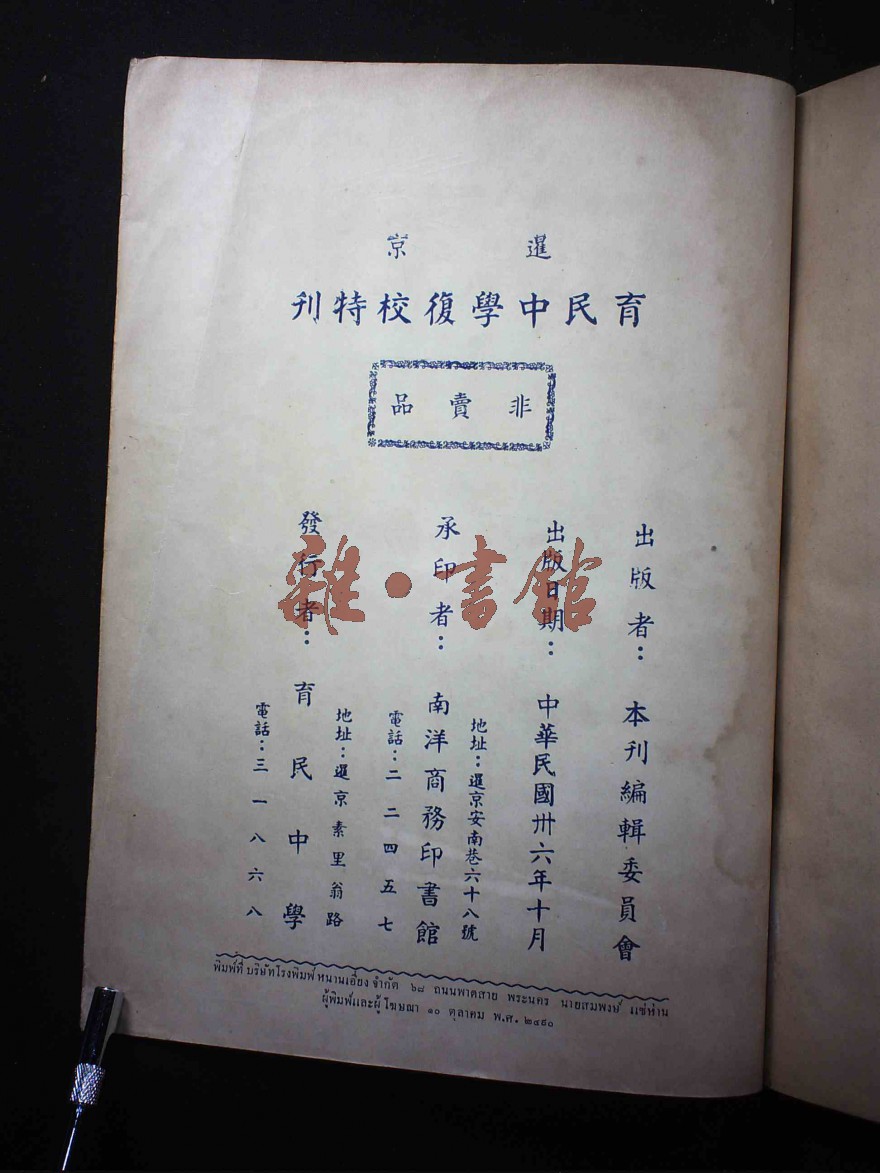 暹京
育民中學復校特刊
非賣品
出版者：本刊編輯委員會
出版日期：中華民國卅六年十月
承印者：南洋商務印書館
地址：暹京安南巷六十八號
電話：二二四五七
發行者：育民中學
地址：暹京素里翁路
電話：三一八六八
พิมพ์ที่ บริษัทโรงพิมพ์ หนานเอี๋ยง จำกัด ๖๘ ถนนพาดสาย พระนคร นายสมพงษ์ แซ่ห่าน
ผู้พิมพ์และผู้โฆษณา ๑๐ ตุลาคม พ.ศ. ๒๔๙๐
雜·書館